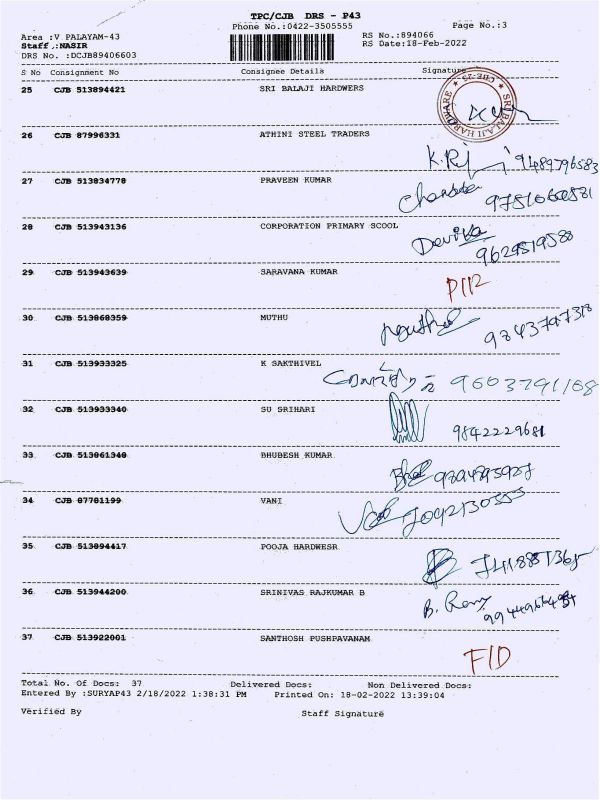 TPC/CJB DRS - P43
Phone No.:0422-3505555 Page No.:3
Area :V PALAYAM-43 RS No.:894066
Staff :NASIR RS Date:18-Feb-2022
DRS No. :DCJB89406603
S No Consignment No Consignee Details Signature
SRI BALAJI HARDWARE CBE-25
25 CJB 513894421 SRI BALAJI HARDWERS
26 CJB 87996331 ATHINI STEEL TRADERS
9489796583
27 CJB 513834778 PRAVEEN KUMAR
28 CJB 513943136 CORPORATION PRIMARY SCOOL
Devika
9629519588
29 CJB 513943639 SARAVANA KUMAR
30 CJB 513868359 MUTHU
31 CJB 513933325 K SAKTHIVEL
9603791168
32 CJB 513933340 SU SRIHARI
9842229681
33 CJB 513861348 BHUBESH KUMAR
34 CJB 87781199 VANI
35 CJB 513894417 POOJA HARDWESR
36 CJB 513944200 SRINIVAS RAJKUMAR B
37 CJB 513922001 SANTHOSH PUSHPAVANAM
Total No. Of Docs: 37 Delivered Docs: Non Delivered Docs:
Entered By :SURYAP43 2/18/2022 1:38:31 PM Printed On: 18-02-2022 13:39:04
Verified By Staff Signature